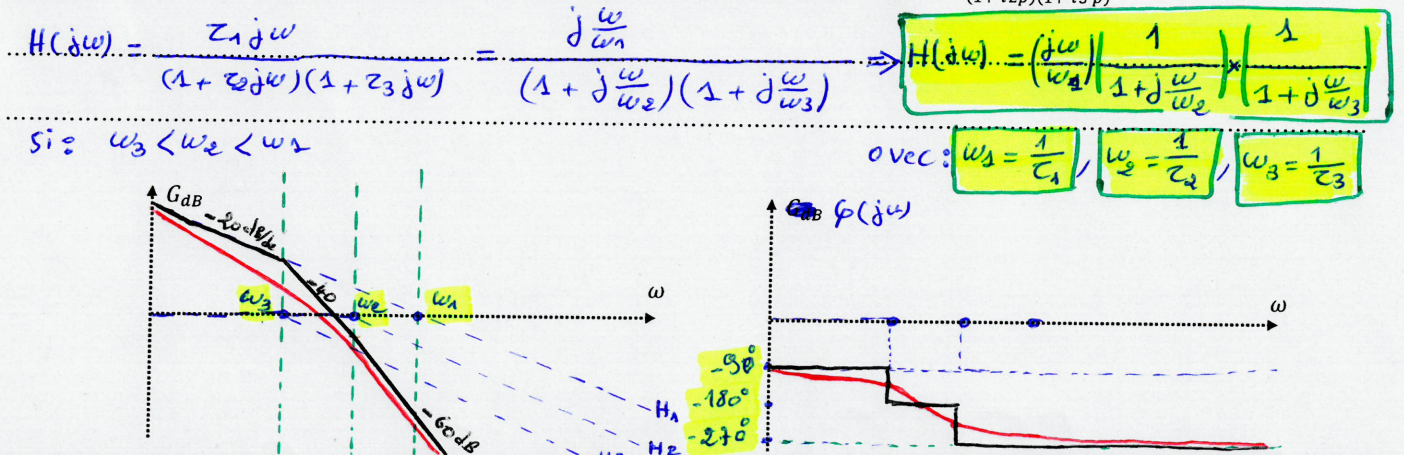 (1+τ2p)(1+τ3p)
H(jω) = τ1jω / (1+τ2jω)(1+τ3jω) = j ω/ω1 / (1+j ω/ω2)(1+j ω/ω3) ⇒ H(jω) = (jω/ω1)(1 / 1+j ω/ω2) × (1 / 1+j ω/ω3)
Si : ω3 < ω2 < ω1
avec : ω1 = 1/τ1 , ω2 = 1/τ2 , ω3 = 1/τ3
GdB
-20dB/de
-40
ω3
ω2
ω1
ω
-60dB
H1
H2
GdB φ(jω)
ω
-90°
-180°
-270°